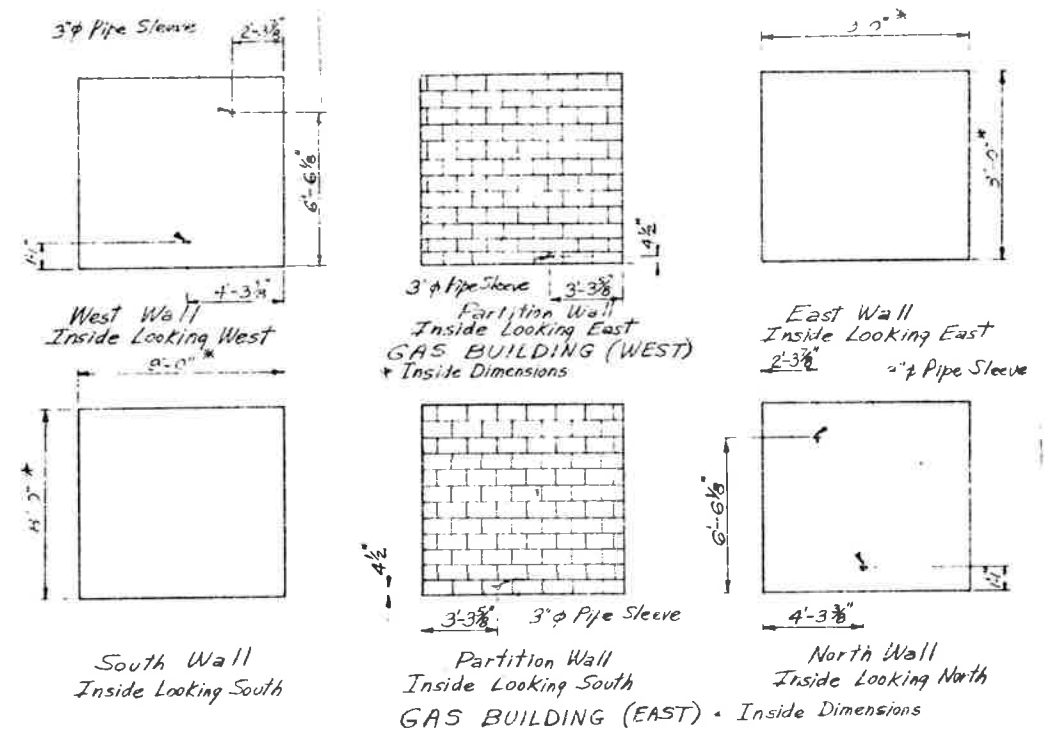 3"φ Pipe Sleeve
2'-3⅞"
6'-6⅛"
4'-3⅜"
West Wall
Inside Looking West
3"φ Pipe Sleeve
4½"
3'-3⅝"
Partition Wall
Inside Looking East
GAS BUILDING (WEST)
* Inside Dimensions
East Wall
Inside Looking East
9'-0" *
8'-0" *
South Wall
Inside Looking South
4½"
3'-3⅝"
3"φ Pipe Sleeve
Partition Wall
Inside Looking South
2'-3⅞"
φ Pipe Sleeve
6'-6⅛"
4'-3⅜"
North Wall
Inside Looking North
GAS BUILDING (EAST) * Inside Dimensions